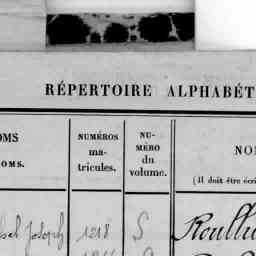 RÉPERTOIRE ALPHABÉT
OMS
OMS.
NUMÉROS
ma-
tricules.
NU-
MÉRO
du
volume.
NO
(Il doit être écri
Joseph 1218 5